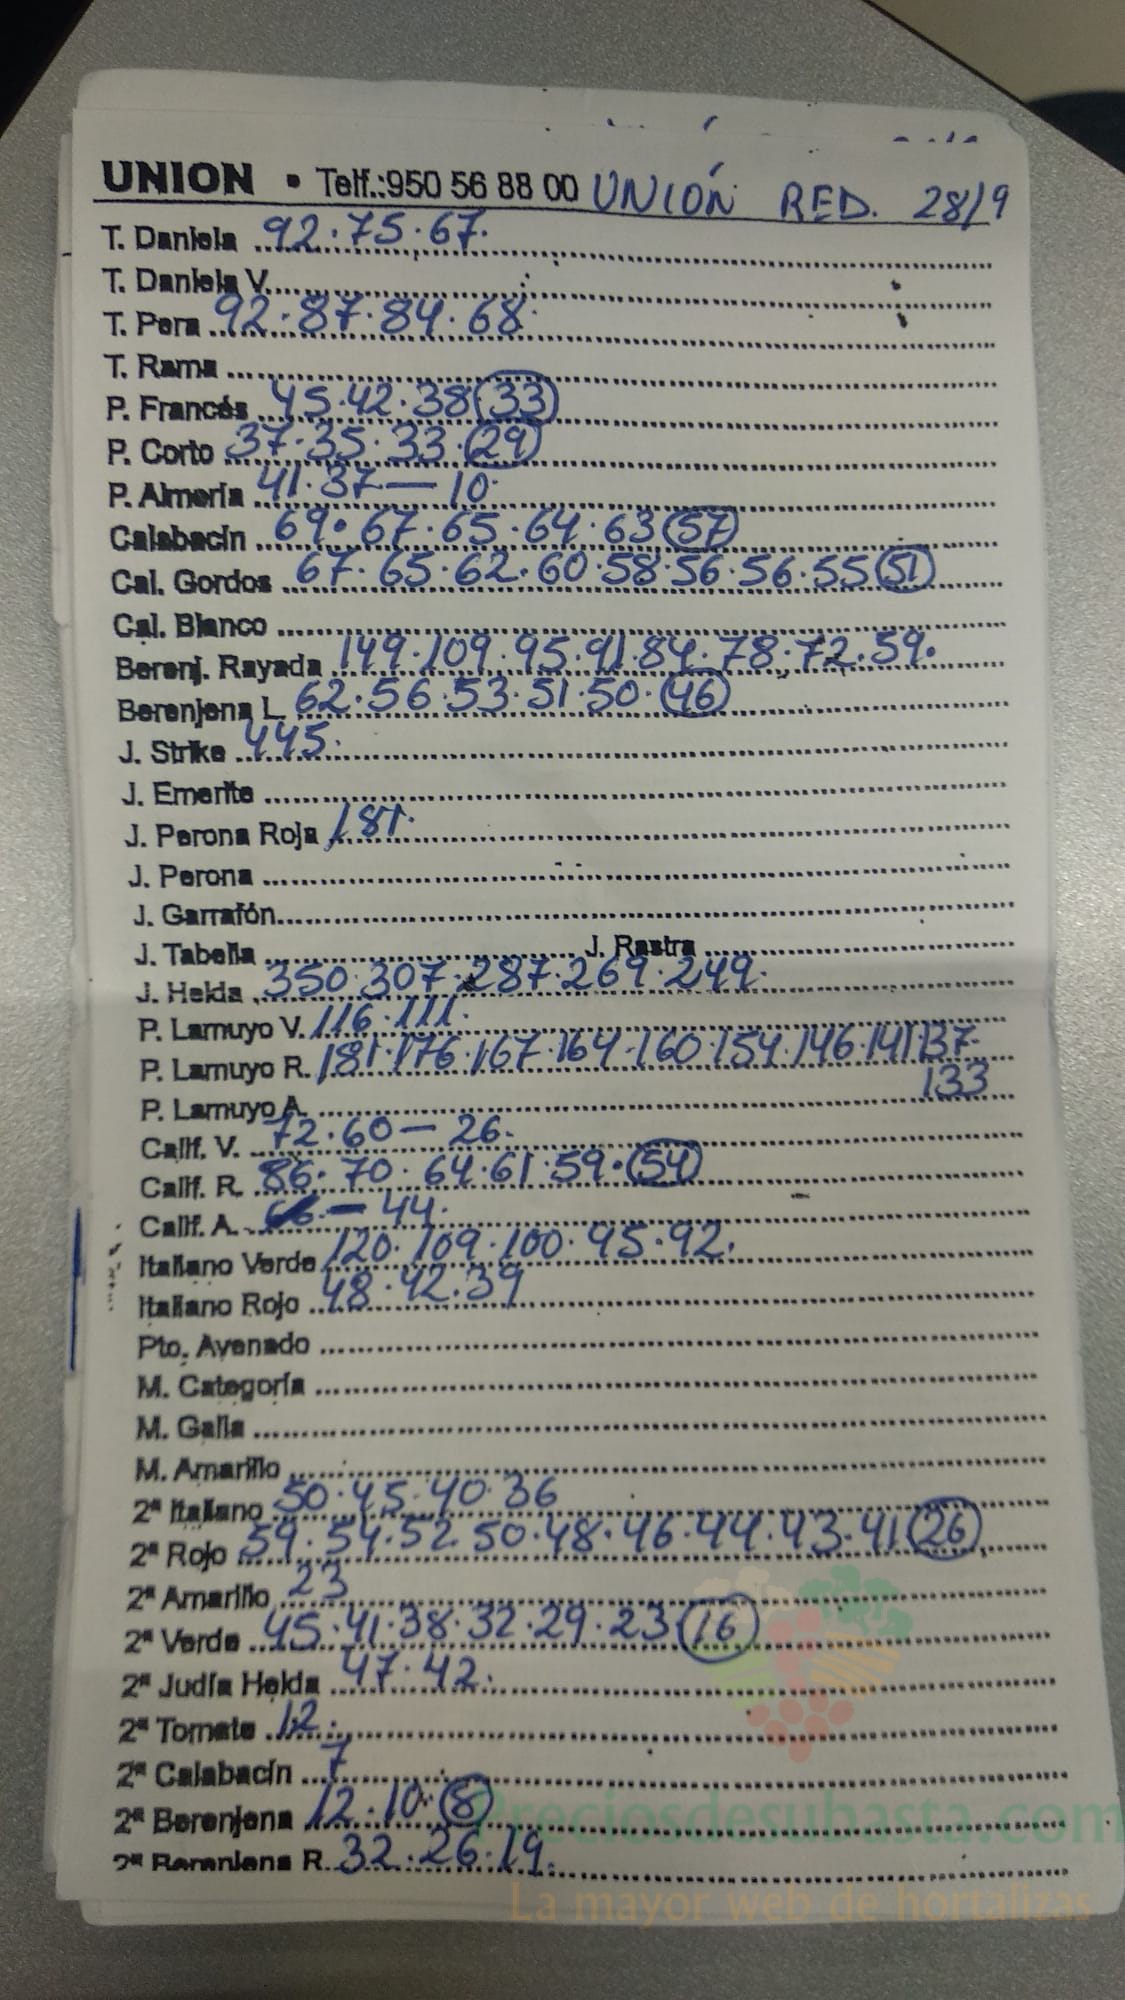 UNION • Telf.:950 56 88 00 UNIÓN RED. 28/9
T. Daniela 92·75·67·
T. Daniela V.
T. Pera 92·87·84·68·
T. Rama
P. Francés 45·42·38 33
P. Corto 37·35·33· 29
P. Almería 41·37— 10·
Calabacín 69·67·65·64·63 57
Cal. Gordos 67·65·62·60·58·56·56·55 51
Cal. Blanco
Berenj. Rayada 149·109·95·91·84·78·72·59·
Berenjena L. 62·56·53·51·50· 46
J. Strike 445·
J. Emerite
J. Perona Roja 181·
J. Perona
J. Garrafón
J. Tabella J. Rastra
J. Helda 350·307·287·269·249·
P. Lamuyo V. 116·111·
P. Lamuyo R. 181·176·167·164·160·154·146·141·137·
133
P. Lamuyo A.
Calif. V. 72·60— 26·
Calif. R. 86·70·64·61·59· 54
Calif. A. — 44·
Italiano Verde 120·109·100·95·92·
Italiano Rojo 48·42·39
Pto. Avenado
M. Categoría
M. Galia
M. Amarillo
2ª Italiano 50·45·40·36
2ª Rojo 59·54·52·50·48·46·44·43·41 26
2ª Amarillo 23
2ª Verde 45·41·38·32·29·23 16
2ª Judía Helda 47·42·
2ª Tomate 12·
2ª Calabacín 7
2ª Berenjena 12·10· 8
2ª Berenjena R. 32·26·19·
Preciosdesubasta.com
La mayor web de hortalizas